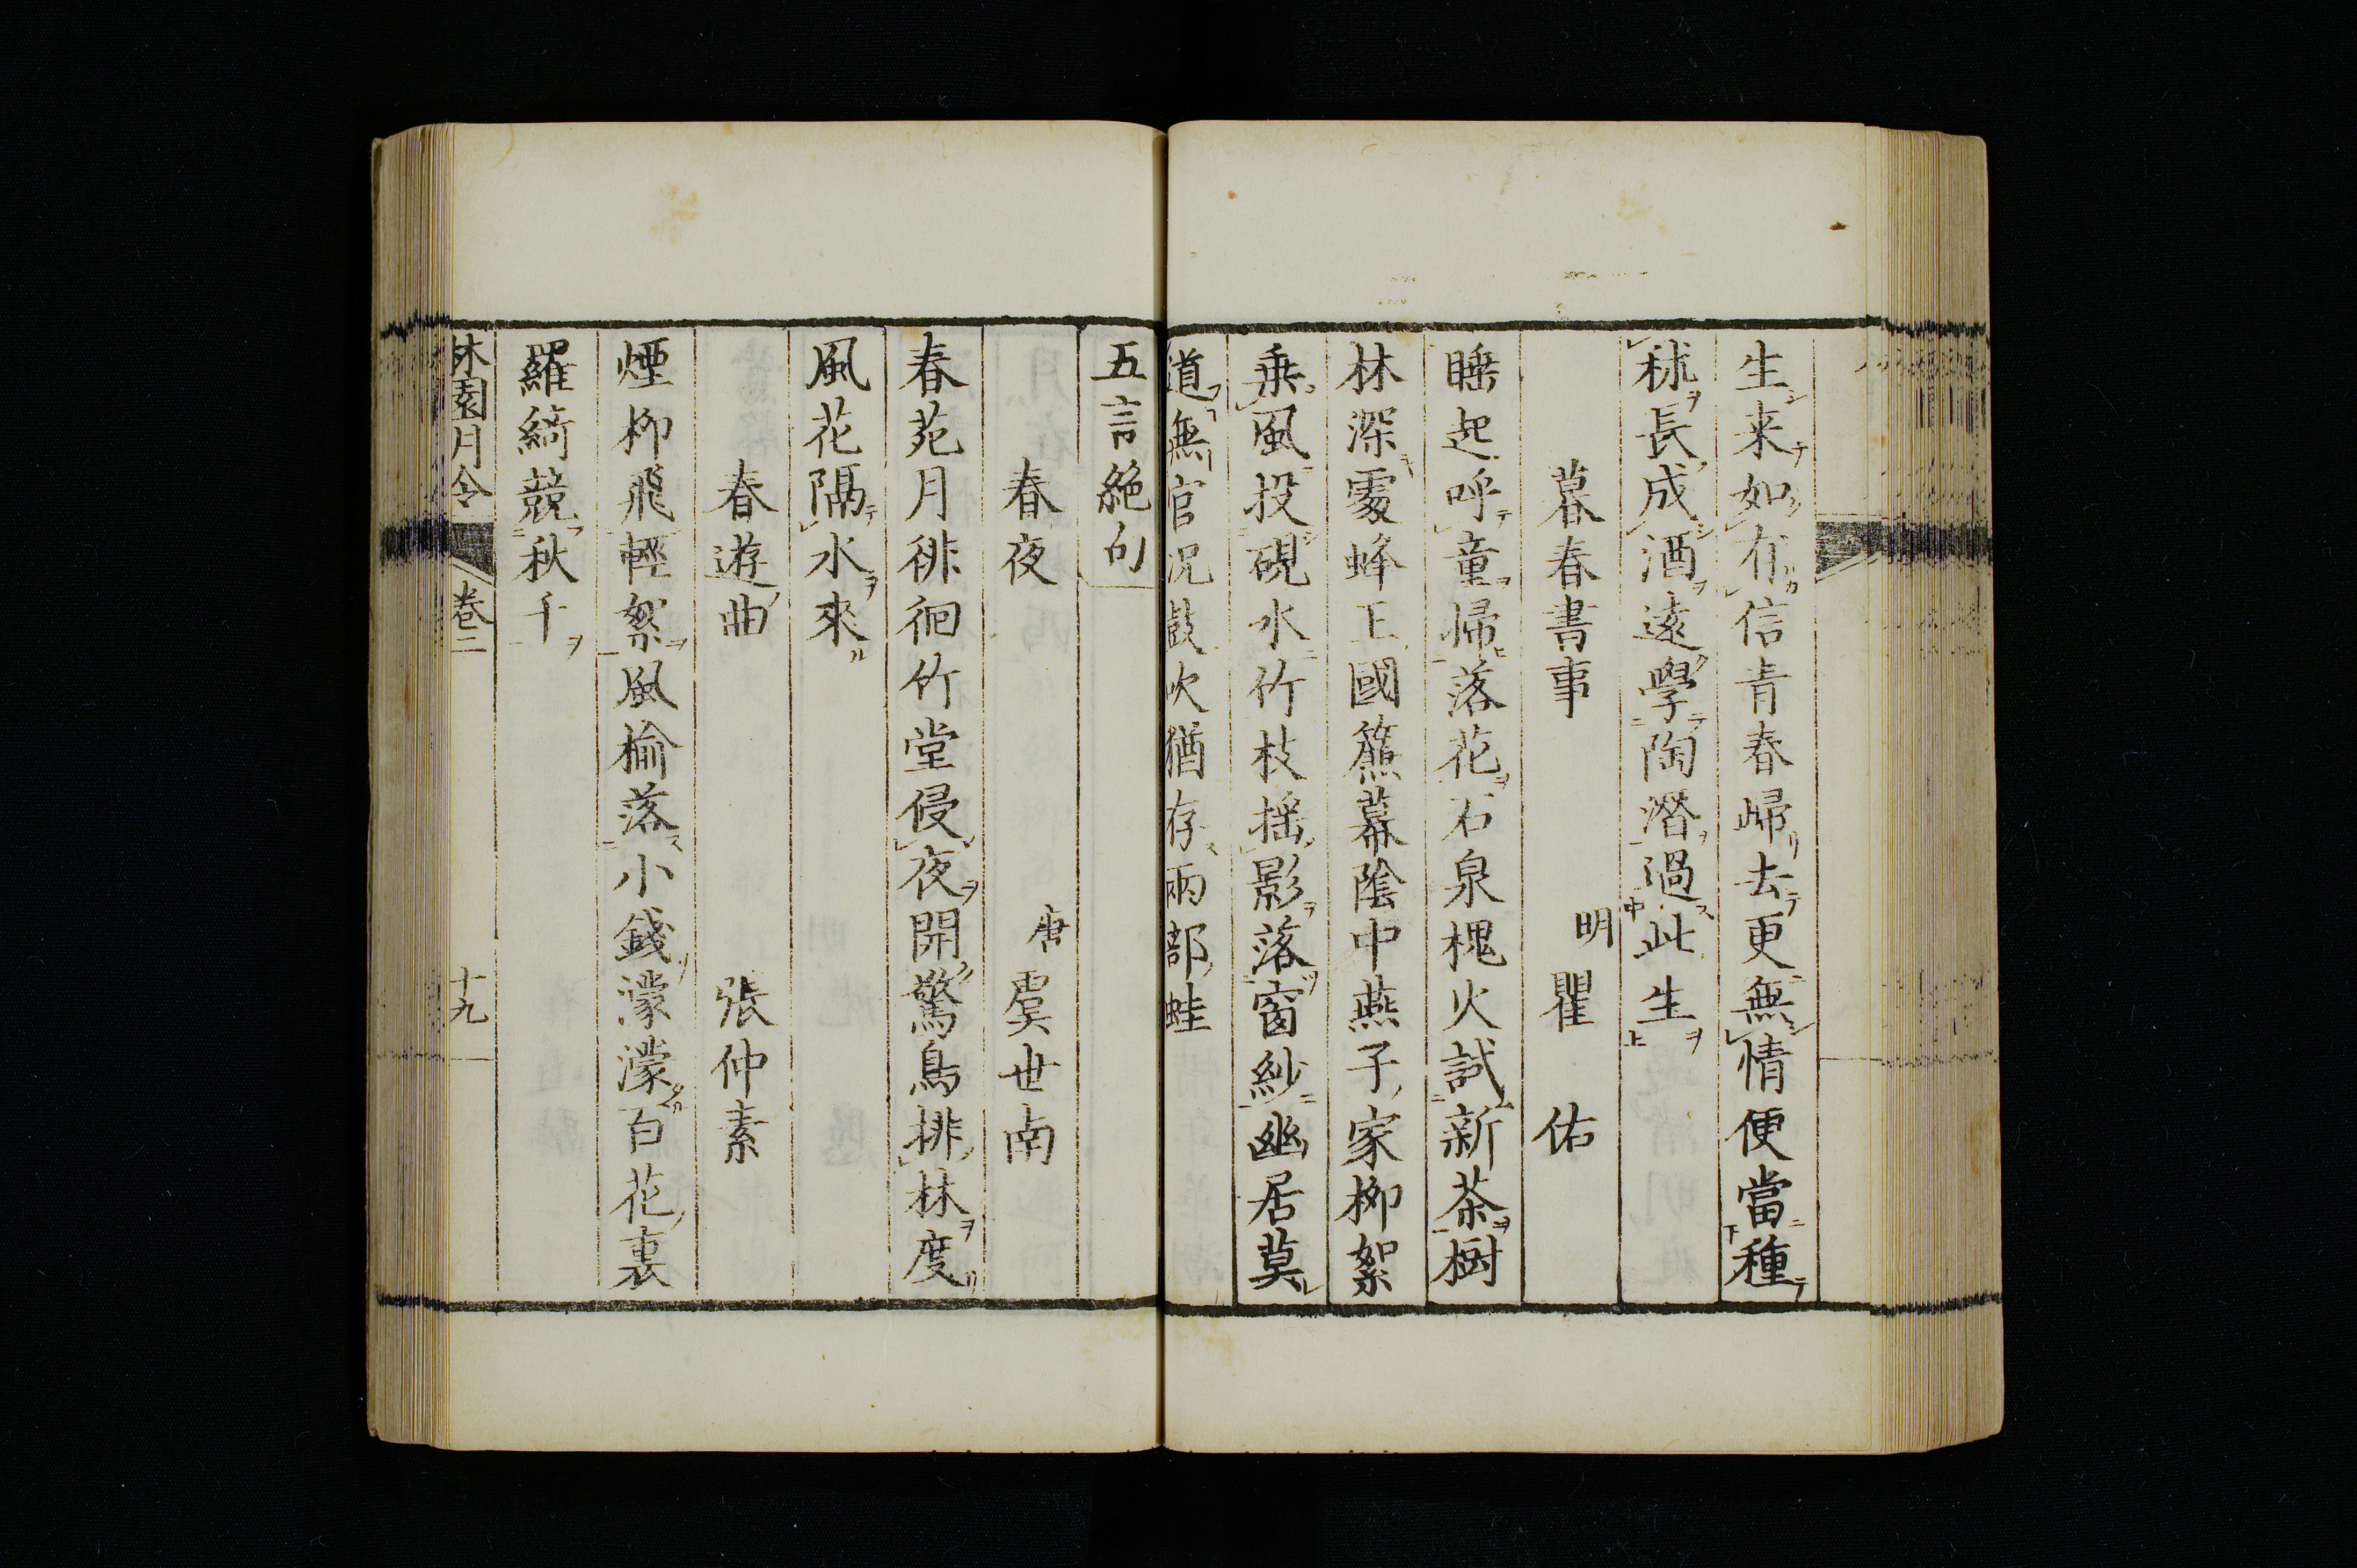 生来如有信青春歸去更無情便當種
秫長成酒遠學陶潛過此生
暮春書事 明 瞿佑
睡起呼童掃落花石泉槐火試新茶樹
林深處蜂王國簾幕陰中燕子家柳絮
乗風投硯水竹枝揺影落窗紗幽居莫
道無官况鼓吹猶存兩部蛙
五言絶句
春夜 唐 虞世南
春苑月徘徊竹堂侵夜開驚鳥排林度
風花隔水來
春遊曲 張仲素
煙柳飛輕絮風榆落小錢濛濛百花裏
羅綺競秋千
林園月令 卷二 十九